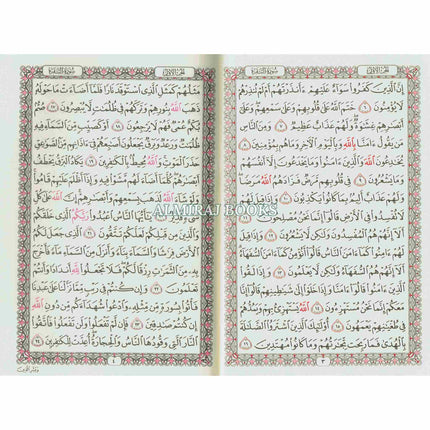 الجزء الأول
سورة البقرة
إِنَّ ٱلَّذِينَ كَفَرُوا۟ سَوَآءٌ عَلَيْهِمْ ءَأَنذَرْتَهُمْ أَمْ لَمْ تُنذِرْهُمْ
لَا يُؤْمِنُونَ ٦ خَتَمَ ٱللَّهُ عَلَىٰ قُلُوبِهِمْ وَعَلَىٰ سَمْعِهِمْ وَعَلَىٰٓ
أَبْصَـٰرِهِمْ غِشَـٰوَةٌ وَلَهُمْ عَذَابٌ عَظِيمٌ ٧ وَمِنَ ٱلنَّاسِ
مَن يَقُولُ ءَامَنَّا بِٱللَّهِ وَبِٱلْيَوْمِ ٱلْـَٔاخِرِ وَمَا هُم بِمُؤْمِنِينَ ٨
يُخَـٰدِعُونَ ٱللَّهَ وَٱلَّذِينَ ءَامَنُوا۟ وَمَا يَخْدَعُونَ إِلَّآ أَنفُسَهُمْ
وَمَا يَشْعُرُونَ ٩ فِى قُلُوبِهِم مَّرَضٌ فَزَادَهُمُ ٱللَّهُ مَرَضًا
وَلَهُمْ عَذَابٌ أَلِيمٌۢ بِمَا كَانُوا۟ يَكْذِبُونَ ١٠ وَإِذَا قِيلَ لَهُمْ
لَا تُفْسِدُوا۟ فِى ٱلْأَرْضِ قَالُوٓا۟ إِنَّمَا نَحْنُ مُصْلِحُونَ ١١
أَلَآ إِنَّهُمْ هُمُ ٱلْمُفْسِدُونَ وَلَـٰكِن لَّا يَشْعُرُونَ ١٢ وَإِذَا قِيلَ
لَهُمْ ءَامِنُوا۟ كَمَآ ءَامَنَ ٱلنَّاسُ قَالُوٓا۟ أَنُؤْمِنُ كَمَآ ءَامَنَ ٱلسُّفَهَآءُ
أَلَآ إِنَّهُمْ هُمُ ٱلسُّفَهَآءُ وَلَـٰكِن لَّا يَعْلَمُونَ ١٣ وَإِذَا لَقُوا۟
ٱلَّذِينَ ءَامَنُوا۟ قَالُوٓا۟ ءَامَنَّا وَإِذَا خَلَوْا۟ إِلَىٰ شَيَـٰطِينِهِمْ قَالُوٓا۟ إِنَّا
مَعَكُمْ إِنَّمَا نَحْنُ مُسْتَهْزِءُونَ ١٤ ٱللَّهُ يَسْتَهْزِئُ بِهِمْ وَيَمُدُّهُمْ
فِى طُغْيَـٰنِهِمْ يَعْمَهُونَ ١٥ أُو۟لَـٰٓئِكَ ٱلَّذِينَ ٱشْتَرَوُا۟ ٱلضَّلَـٰلَةَ
بِٱلْهُدَىٰ فَمَا رَبِحَت تِّجَـٰرَتُهُمْ وَمَا كَانُوا۟ مُهْتَدِينَ ١٦
٣
الجزء الأول
سورة البقرة
مَثَلُهُمْ كَمَثَلِ ٱلَّذِى ٱسْتَوْقَدَ نَارًا فَلَمَّآ أَضَآءَتْ مَا حَوْلَهُۥ
ذَهَبَ ٱللَّهُ بِنُورِهِمْ وَتَرَكَهُمْ فِى ظُلُمَـٰتٍ لَّا يُبْصِرُونَ ١٧ صُمٌّۢ
بُكْمٌ عُمْىٌ فَهُمْ لَا يَرْجِعُونَ ١٨ أَوْ كَصَيِّبٍ مِّنَ ٱلسَّمَآءِ فِيهِ
ظُلُمَـٰتٌ وَرَعْدٌ وَبَرْقٌ يَجْعَلُونَ أَصَـٰبِعَهُمْ فِىٓ ءَاذَانِهِم مِّنَ ٱلصَّوَٰعِقِ
حَذَرَ ٱلْمَوْتِ وَٱللَّهُ مُحِيطٌۢ بِٱلْكَـٰفِرِينَ ١٩ يَكَادُ ٱلْبَرْقُ يَخْطَفُ
أَبْصَـٰرَهُمْ كُلَّمَآ أَضَآءَ لَهُم مَّشَوْا۟ فِيهِ وَإِذَآ أَظْلَمَ عَلَيْهِمْ قَامُوا۟
وَلَوْ شَآءَ ٱللَّهُ لَذَهَبَ بِسَمْعِهِمْ وَأَبْصَـٰرِهِمْ إِنَّ ٱللَّهَ عَلَىٰ كُلِّ
شَىْءٍ قَدِيرٌ ٢٠ يَـٰٓأَيُّهَا ٱلنَّاسُ ٱعْبُدُوا۟ رَبَّكُمُ ٱلَّذِى خَلَقَكُمْ
وَٱلَّذِينَ مِن قَبْلِكُمْ لَعَلَّكُمْ تَتَّقُونَ ٢١ ٱلَّذِى جَعَلَ لَكُمُ
ٱلْأَرْضَ فِرَٰشًا وَٱلسَّمَآءَ بِنَآءً وَأَنزَلَ مِنَ ٱلسَّمَآءِ مَآءً فَأَخْرَجَ
بِهِۦ مِنَ ٱلثَّمَرَٰتِ رِزْقًا لَّكُمْ فَلَا تَجْعَلُوا۟ لِلَّهِ أَندَادًا وَأَنتُمْ
تَعْلَمُونَ ٢٢ وَإِن كُنتُمْ فِى رَيْبٍ مِّمَّا نَزَّلْنَا عَلَىٰ عَبْدِنَا
فَأْتُوا۟ بِسُورَةٍ مِّن مِّثْلِهِۦ وَٱدْعُوا۟ شُهَدَآءَكُم مِّن دُونِ ٱللَّهِ
إِن كُنتُمْ صَـٰدِقِينَ ٢٣ فَإِن لَّمْ تَفْعَلُوا۟ وَلَن تَفْعَلُوا۟ فَٱتَّقُوا۟
ٱلنَّارَ ٱلَّتِى وَقُودُهَا ٱلنَّاسُ وَٱلْحِجَارَةُ أُعِدَّتْ لِلْكَـٰفِرِينَ ٢٤
٤
وبشر الذين
ALMIRAJ BOOKS